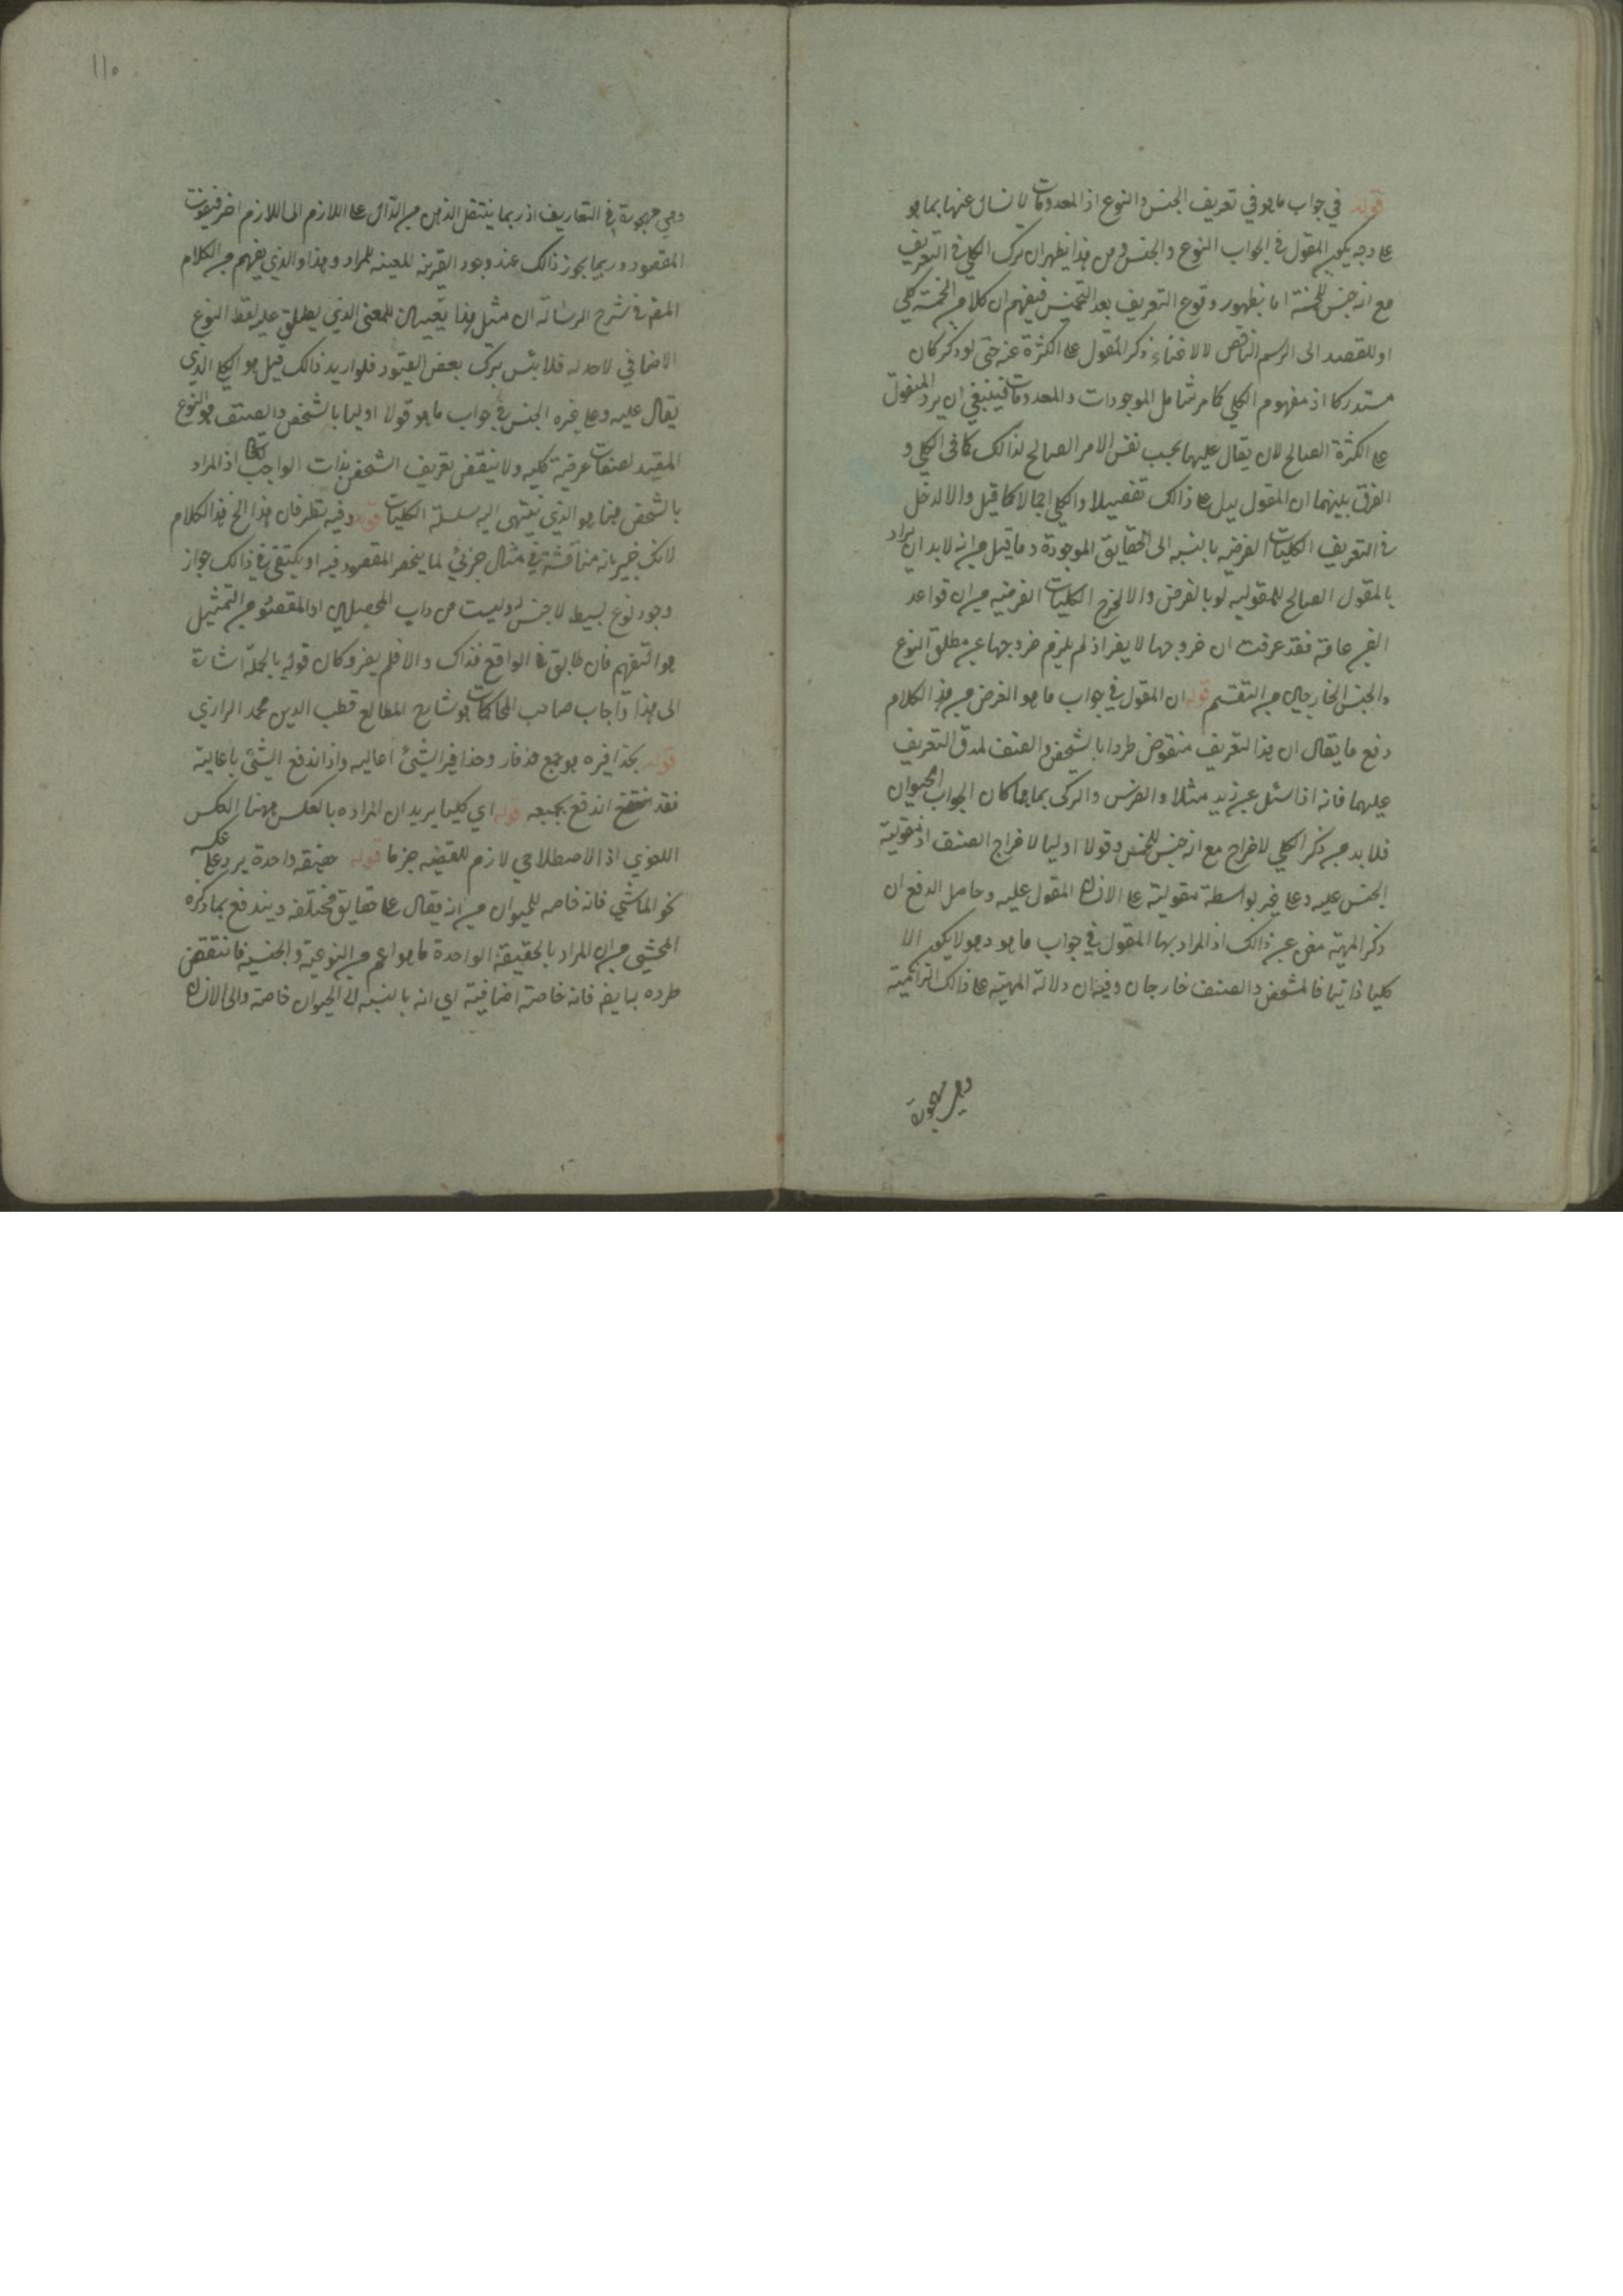 قوله في جواب ما هو في تعريف الجنس والنوع اذ المعدومات لا نسال عنها بما هو
على وجه يكون المقول في الجواب النوع والجنس ومن هذا يظهر ان ترك الكلي في التعريف
مع انه جنس للخمسة اما بظهور وقوع التعريف بعد التخميس فيفهم ان كلا من الخمسة كلي
او للقصد الى الرسم الناقص لا لاغناء ذكر المقول على الكثرة عنه حتى لو ذكر كان
مستدركا اذ مفهوم الكلي كما مر شامل الموجودات والمعدومات فينبغي ان يرد المقول
على الكثرة الصالح لان يقال عليها بحسب نفس الامر الصالح لذالك كما في الكلي و
الفرق بينهما ان المقول يدل على ذالك تفصيلا والكلي اجمالا كما قيل والا لدخل
في التعريف الكليات الفرضيه بالنسبه الى الحقايق الموجودة وما قيل من انه لا بد ان يراد
بالمقول الصالح للمقوليه لو بالفرض والا لخرج الكليات الفرضيه من ان قواعد
الفن عامة فقد عرفت ان خروجها لا يضر اذ لم يلزم خروجها عن مطلق النوع
والجنس الخارجين من التقسيم قوله ان المقول في جواب ما هو الغرض من هذا الكلام
دفع ما يقال ان هذا التعريف منقوض طردا بالشخص والصنف لصدق التعريف
عليهما فانه اذا سئل عن زيد مثلا والفرس والتركي بما هما كان الجواب الحيوان
فلا بد من ذكر الكلي لاخراج مع انه جنس للخمس وقولا اوليا لاخراج الصنف اذ مقولية
الجنس عليه وعلى غيره بواسطة مقولية على الانسان المقول عليه وحاصل الدفع ان
ذكر المهية مغن عن ذالك اذ المراد بها المقول في جواب ما هو وهو لا يكون الا
كليا ذاتيا فالشخص والصنف خارجان وفيه ان دلالة المهية على ذالك التزامية
وهي مهجورة
١١٥
وهي مهجورة في التعاريف اذ ربما ينتقل الذهن من الدال على اللازم الى اللازم اخر فيفوت
المقصود وربما يجوز ذالك عند وجود القرينه المعينه للمراد وهذا والذي يفهم من الكلام
المقرر في شرح الرسالة ان مثل هذا تعيين للمعنى الذي يطلق عليه لفظ النوع
الاضافي لا حد له فلا بئس بترك بعض القيود فلو اريد ذالك قيل هو الكلي الذي
يقال عليه وعلى غيره الجنس في جواب ما هو قولا اوليا بالشخص والصنف هو النوع
المقيد لصفات عرضية كليه ولا ينتقض تعريف الشخص بذات الواجب تعالى اذ المراد
بالشخص هنا هو الذي ينتهي اليه سلسلة الكليات قوله وفيه نظر فان هذا الخ هذا الكلام
لانك خبير بانه مناقشة في مثال جزئي لما ينحصر المقصود فيه او يكتفى في ذالك جواز
وجود نوع بسيط لا جنس له وليست من داب المحصلين اذ المقصود من التمثيل
هو التفهيم فان طابق في الواقع فذاك والا فلم يضر وكان قوله بالجملة اشارة
الى هذا واجاب صاحب المحاكمات هو شارح المطالع قطب الدين محمد الرازي
قوله بحذافيره هو جمع حذفار وحذافير الشئ اعاليه واذا اندفع الشئ باعاليه
فقد اندفع بجميعه قوله اي كليما يريد ان المراد بالعكس ههنا العكس
اللغوي اذ الاصطلاحي لازم للقضيه جزما قوله حقيقة واحدة يرد على عكسه
نحو الماشي فانه خاصه للحيوان من انه يقال على حقايق مختلفه ويندفع بما ذكره
المحشي من ان المراد بالحقيقة الواحدة ما هو اعم من النوعية والجنسيه فانتقض
طرده بايضا فانه خاصة اضافية اي انه بالنسبه الى الحيوان خاصة والى الانسان